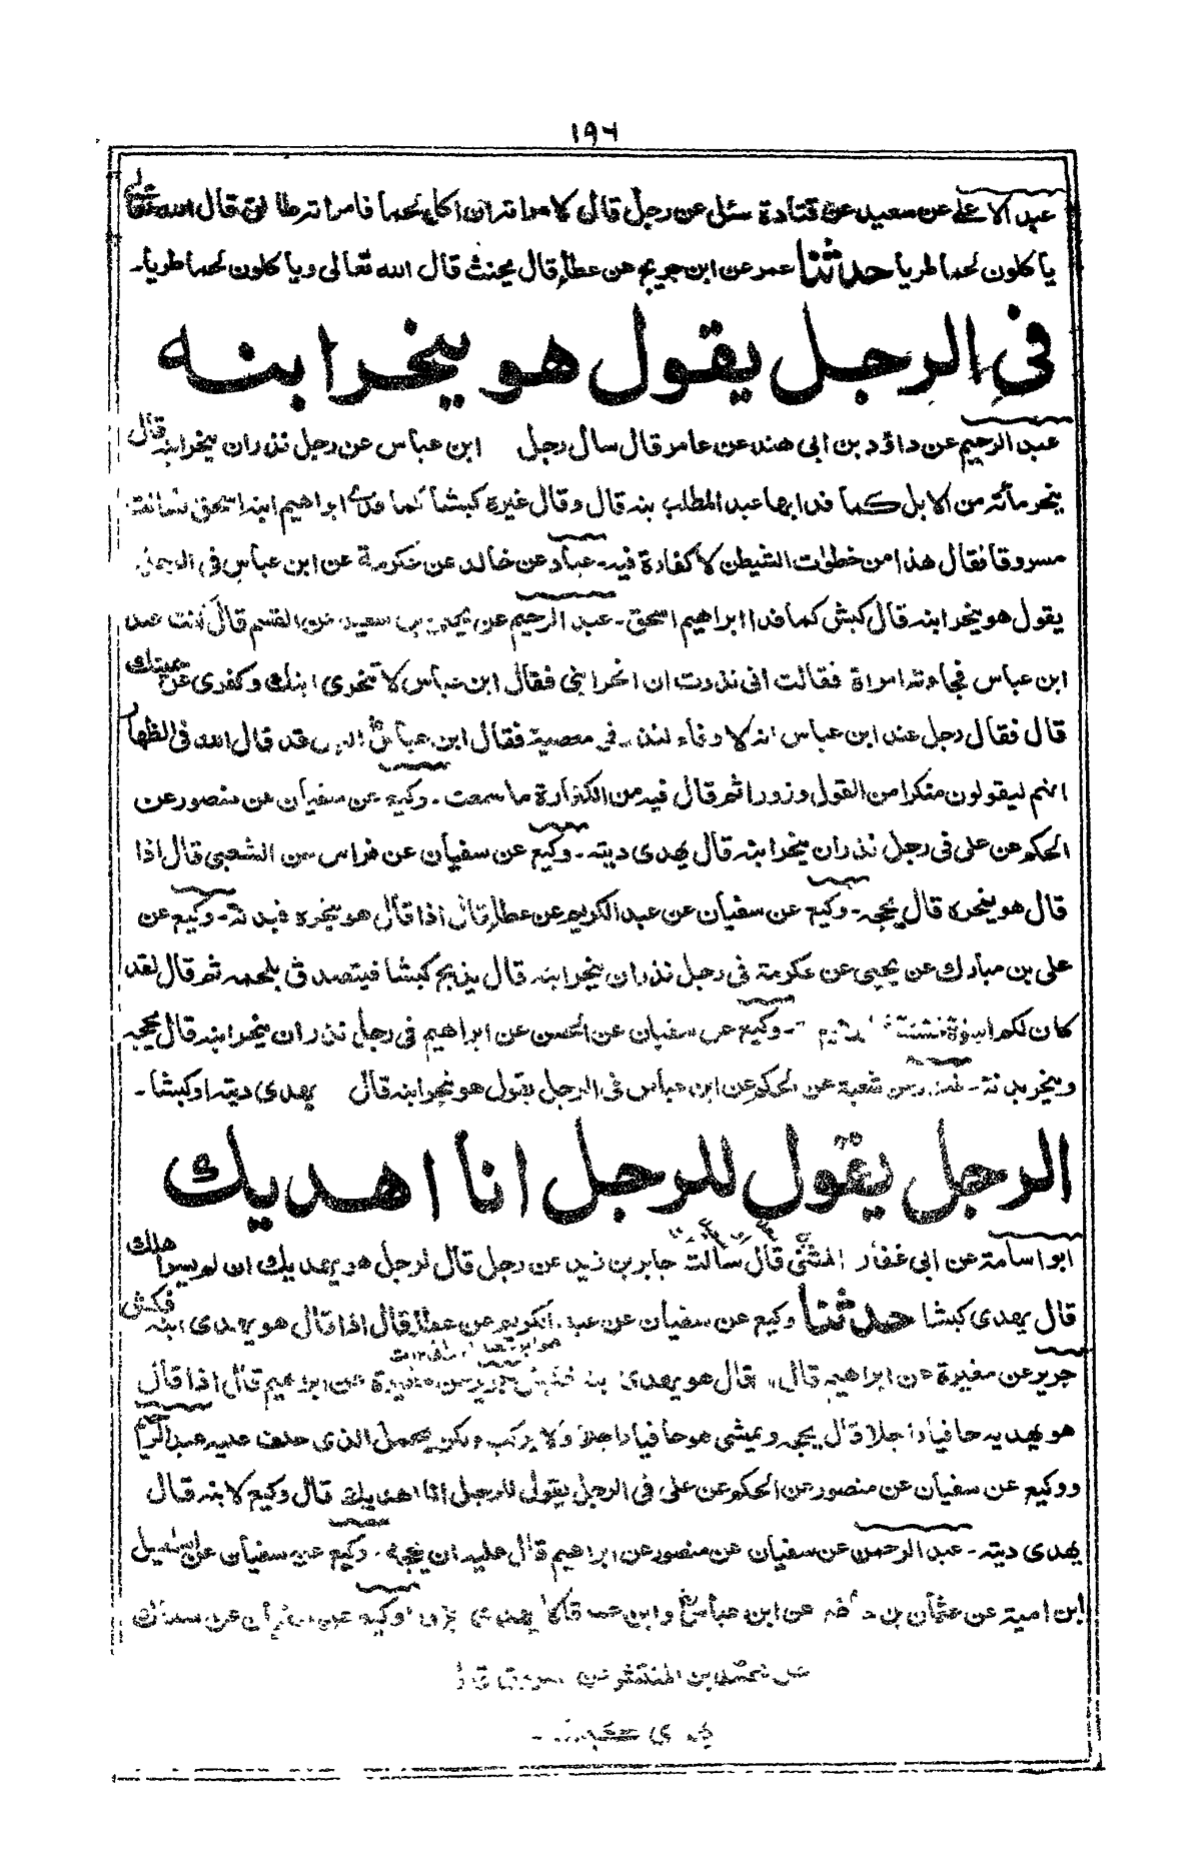 ١٩٦
عبد الاعلى عن سعيد عن قتادة سئل عن رجل قال لامراته ان اكلت لحما فامراته طالق قال الله تعالى
يا كلون لحما طريا حدثنا عمر عن ابن جريج عن عطاء قال يحنث قال الله تعالى ويا كلون لحما طريا۔
فى الرجل يقول هو ينحر ابنه
عبد الرحيم عن داؤد بن ابى هند عن عامر قال سال رجل ابن عباس عن رجل نذر ان ينحر ابنه قال
ينحر مأته من الابل كما فدا بها عبد المطلب بنه قال وقال غيره كبشا كما فدى ابراهيم ابنه اسحق فسالت
مسروقا فقال هذا من خطوات الشيطن لا كفارة فيه۔ عباد عن خالد عن عكرمة عن ابن عباس فى الرجل
يقول هو ينحر ابنه قال كبش كما فدا ابراهيم اسحق۔ عبد الرحيم عن يحيى بن سعيد عن القسم قال كنت عند
ابن عباس فجاءته امراة فقالت انى نذرت ان انحر ابنى فقال ابن عباس لا تنحرى ابنك وكفرى عن يمينك
قال فقال رجل عند ابن عباس انه لا وفاء لنذر فى معصية فقال ابن عباس قد قال الله فى الظهار
انهم ليقولون منكرا من القول وزورا ثم قال فيه من الكفارة ما سمعت۔ وكيع عن سفيان عن منصور عن
الحكم عن على فى رجل نذر ان ينحر ابنه قال يهدى ديته۔ وكيع عن سفيان عن فراس عن الشعبى قال اذا
قال هو ينحره قال يحجه۔ وكيع عن سفيان عن عبد الكريم عن عطاء قال اذا قال هو ينحره فبدنة۔ وكيع عن
على بن مبارك عن يحيى عن عكرمة فى رجل نذر ان ينحر ابنه قال يذبح كبشا فيتصدق بلحمه ثم قال لقد
كان لكم اسوة حسنة ۔ وكيع عن سفيان عن الحسن عن ابراهيم فى رجل نذر ان ينحر ابنه قال يحجه
وينحر بدنة۔ عن شعبة عن الحكم عن ابن عباس فى الرجل يقول هو ينحر ابنه قال يهدى ديته او كبشا۔
الرجل يقول للرجل انا اهديك
ابو اسامة عن ابى غفار المثنى قال سالت جابر بن زيد عن رجل قال لرجل هو يهديك ان لم يسر هلك
قال يهدى كبشا حدثنا وكيع عن سفيان عن عبد الكريم عن عطاء قال اذا قال هو يهدى ابنه فكبش
جرير عن مغيرة عن ابراهيم قال قال هو يهدى عن مغيرة عن ابراهيم قال اذا قال
هو يهديه حافيا راجلا قال يحجه ويمشى هو حافيا راجلا ولا يركب ولكن يحمل الذى حلف عليه عبد الرحيم
ووكيع عن سفيان عن منصور عن الحكم عن على فى الرجل يقول للرجل انا اهديك قال وكيع لابنه قال
يهدى ديته۔ عبد الرحمن عن سفيان عن منصور عن ابراهيم قال عليه ان يحجه۔ وكيع عن سفيان عن اسمعيل
ابن امية عن عثمان بن عن ابن عباس وابن عمر قالا يهدى جزورا وكيع عن سفيان عن سماك
عن محمد بن المنتشر عن مسروق قال
يهدى كبشا۔